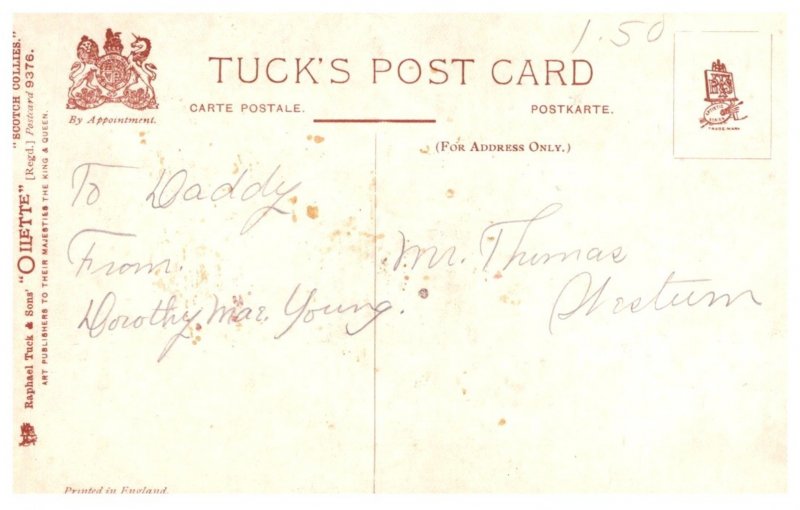 1.50
TUCK'S POST CARD
CARTE POSTALE. POSTKARTE.
By Appointment.
(FOR ADDRESS ONLY.)
TRADE-MARK
To Daddy
From.
Dorothy Mae. Young.
Mr. Thomas
"SCOTCH COLLIES."
Raphael Tuck & Sons' "OILETTE" [Regd.] Postcard 9376.
ART PUBLISHERS TO THEIR MAJESTIES THE KING & QUEEN.
Printed in England.